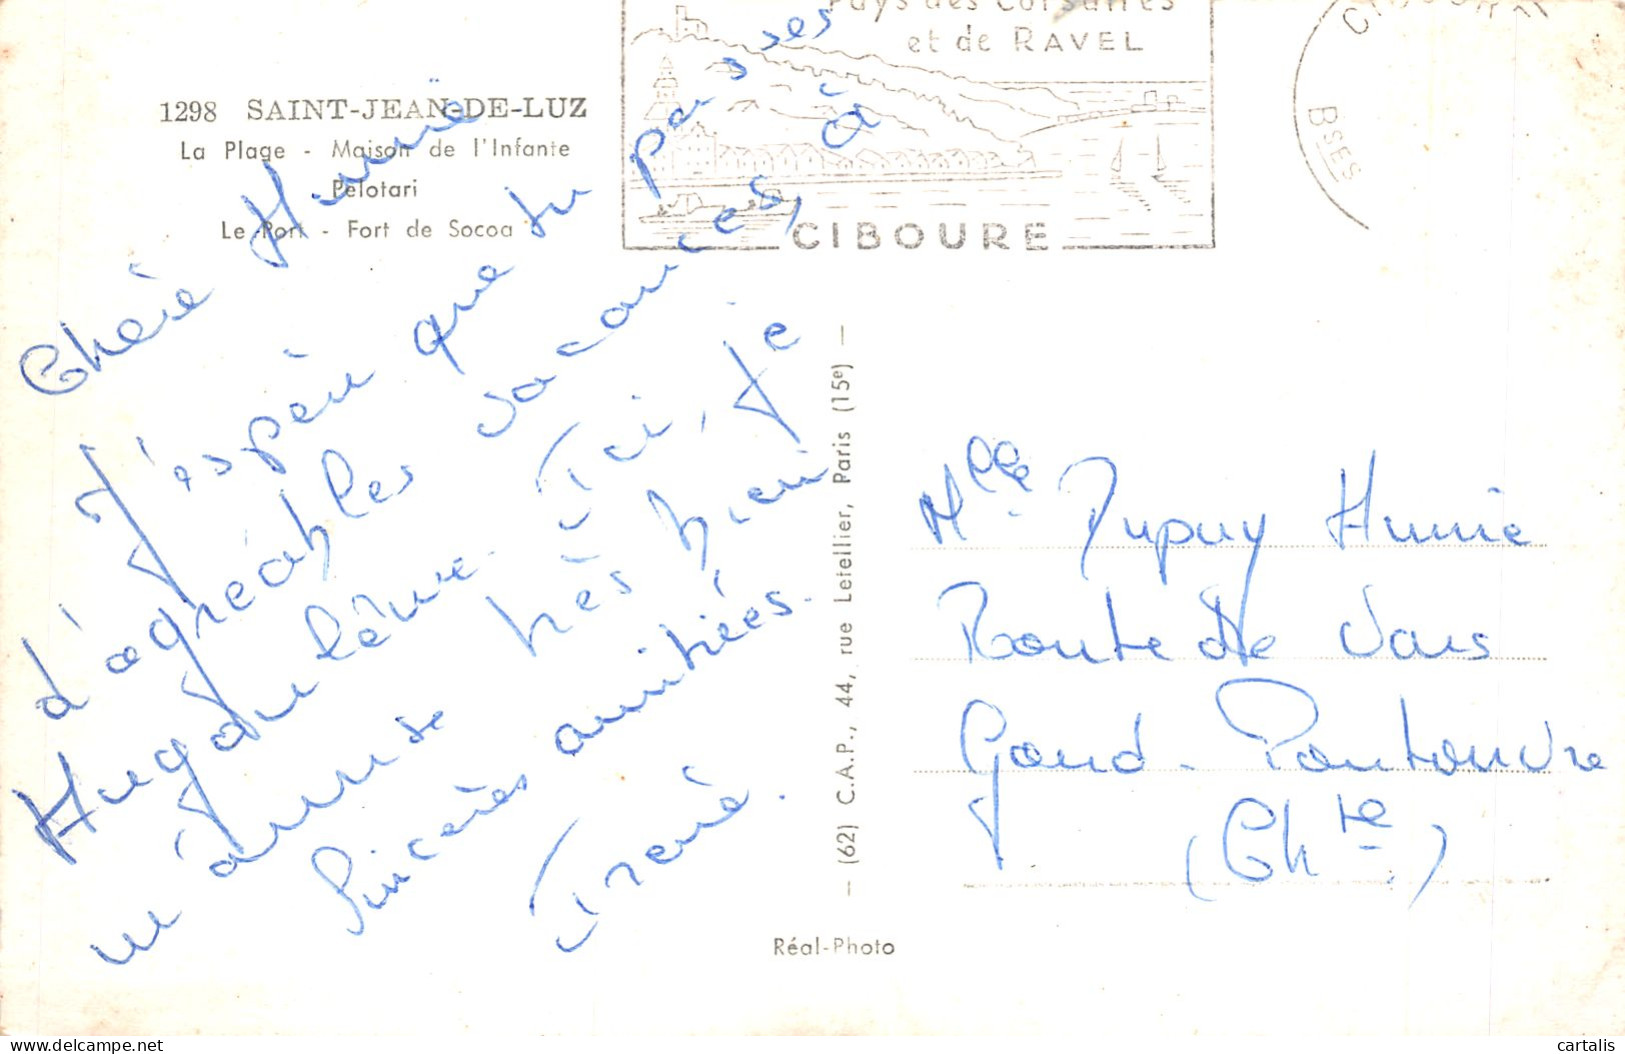 1298 SAINT-JEAN-DE-LUZ
La Plage - Maison de l'Infante
Pelotari
Le Port - Fort de Socoa
Pays des Corsaires
et de RAVEL
CIBOURE
CIBOURE
Bses
Chère Annie
J'espère que tu passes
d'agréables vacances à
Angoulême. Ici, je
m'amuse très bien
Sincères amitiés.
Irène.
— (62) C.A.P., 44, rue Letellier, Paris (15e) —
Réal-Photo
Melle Dupuy Annie
Route de Vars
Gond-Pontouvre
(Chte)
cartalis